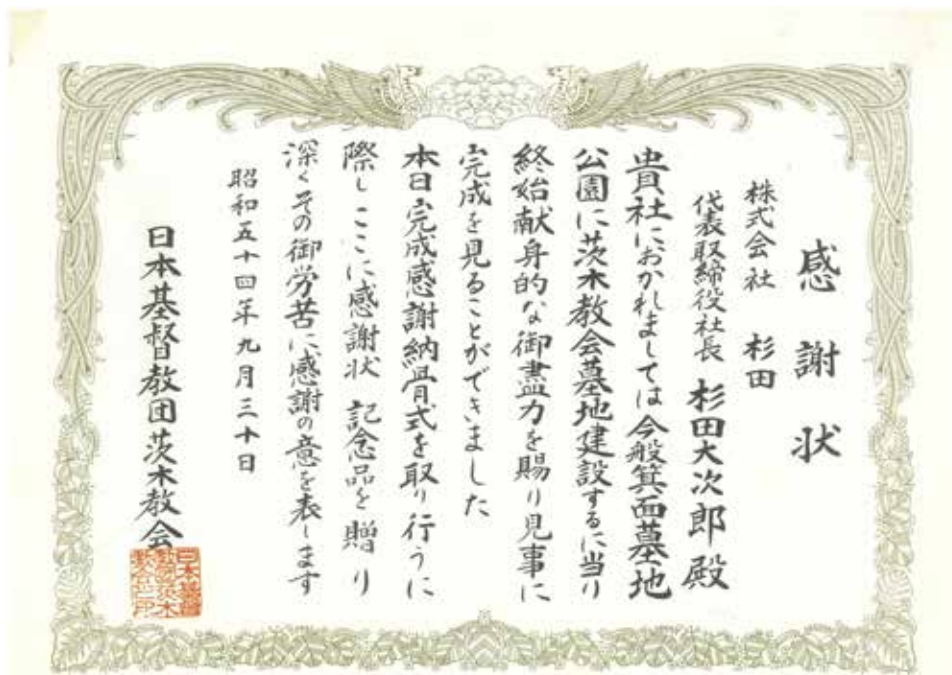 感謝状
株式会社 杉田
代表取締役社長 杉田大次郎殿
貴社におかれましては今般箕面墓地
公園に茨木教会墓地建設するに当り
終始献身的な御盡力を賜り見事に
完成を見ることができました
本日完成感謝納骨式を取り行うに
際しここに感謝状 記念品を贈り
深くその御労苦に感謝の意を表します
昭和五十四年九月三十日
日本基督教団茨木教会